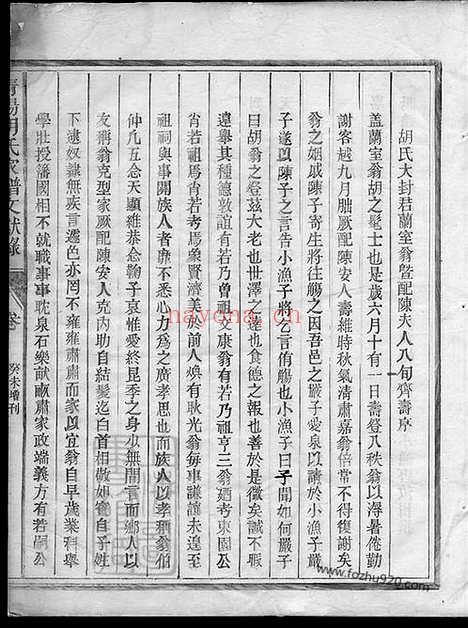 胡氏大封君蘭室翁曁配陳夫人八旬齊壽序
盖蘭室翁胡之髦士也是歲六月十有一日壽登八秩翁以溽暑倦勤
謝客越九月朏厥配陳安人壽維時秋氣清肅嘉翁倍常不得復謝矣
翁之姻戚陳子寄生將往觴之因吾邑之嚴子愛泉以請於小漁子嚴
子遂以陳子之言告小漁子將乞言侑觴也小漁子曰予聞如何嚴子
曰胡翁之登茲大老也世澤之遠也食德之報也善於是徵矣誠不暇
遠舉其種德敦誼有若乃曾祖文康翁有若乃祖亨三翁廼考東園公
肖若祖爲肖若考爲象賢濟美於前人煥有耿光翁每事謙讓未遑至
祖祠與事關族人者靡不悉心力爲之廣孝思也而族人以孝稱翁伯
仲凡五念天顯維恭念鞠子哀惟愛終昆季之身少無閒言而鄉人以
友稱翁克型家厥配陳安人克内助自結髮迄白首相敬如賓自子姓
下逮奴隸無疾言遽色亦罔不雍雍肅肅而家以宜翁自早歲業科舉
學壯授藩國相不就職事事耽泉石樂献畝肅家政端義方有若嗣公
胡氏家譜文献錄
卷
癸未增刊
nayona.cn
www.fozhu920.com